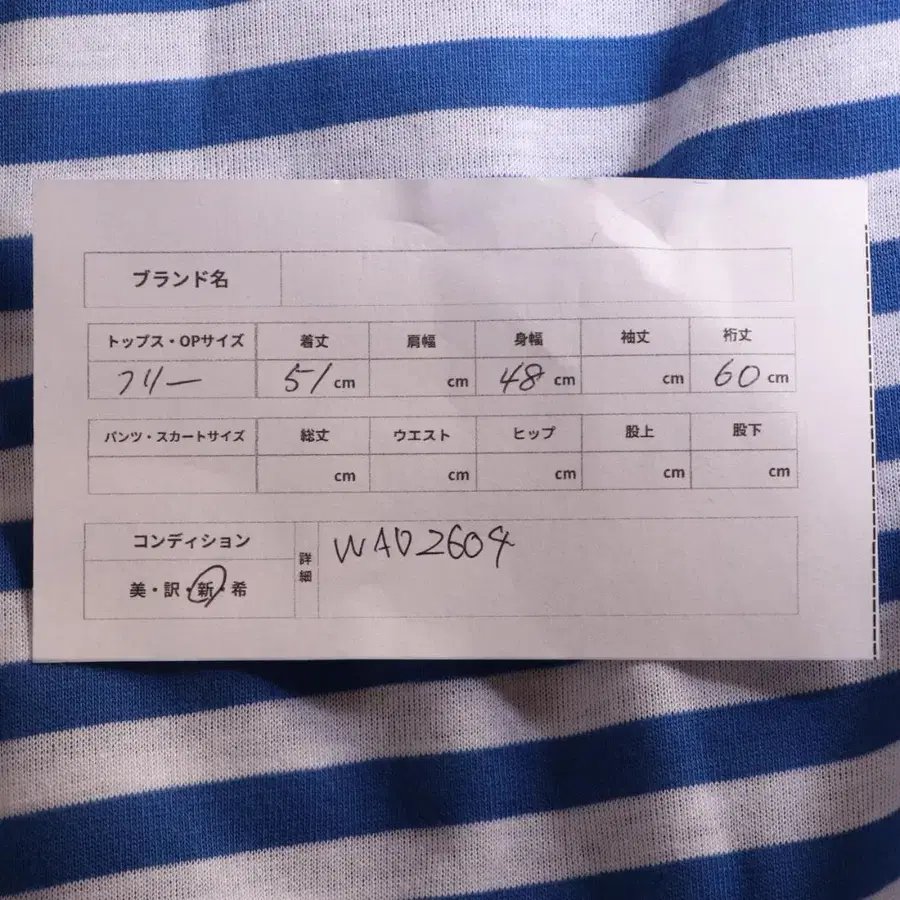 ブランド名
トップス・OPサイズ 着丈 肩幅 身幅 袖丈 裄丈
フリー 51 cm cm 48 cm cm 60 cm
パンツ・スカートサイズ 総丈 ウエスト ヒップ 股上 股下
cm cm cm cm cm
コンディション 詳細 WAD2604
美・訳・新・希